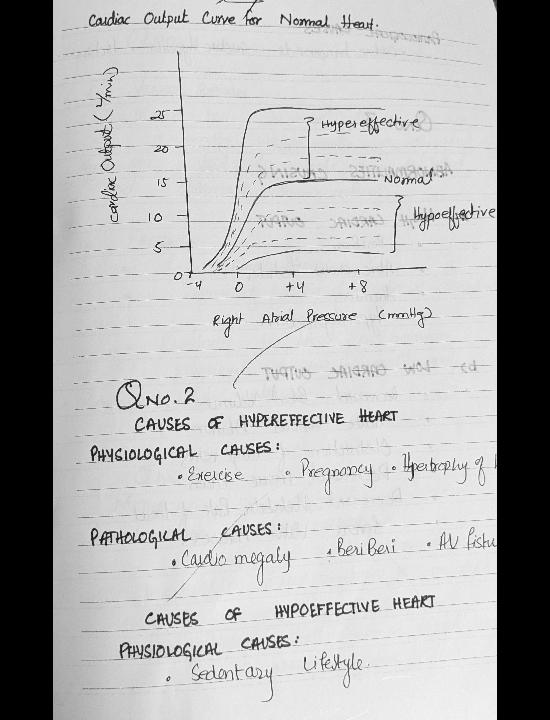 Cardiac Output Curve for Normal Heart.
Cardiac Output (L/min)
25
20
15
10
5
0
Hypereffective
Normal
Hypoeffective
-4 0 +4 +8
Right Atrial Pressure (mmHg)
QNO. 2
CAUSES OF HYPEREFFECTIVE HEART
PHYSIOLOGICAL CAUSES:
• Exercise • Pregnancy • Hpertrophy of
PATHOLOGICAL CAUSES:
• Cardio megaly • BeriBeri • AV fistu
CAUSES OF HYPOEFFECTIVE HEART
PHYSIOLOGICAL CAUSES:
• Sedentary Lifestyle.